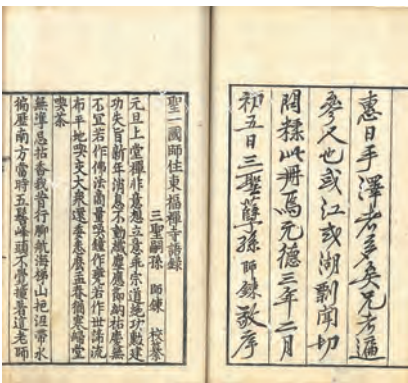 惠日手澤者多矣兄考遍
參尺也或江或湖剽聞切
問隸此冊焉元德三年二月
初五日三聖孽孫師鍊敬序
聖一國師住東福禪寺語録
三聖嗣孫 師鍊 校纂
元旦上堂禪作意想立意乖宗道絶功勲建
功失旨新年消息不動纖塵應節納祐慶無
不宜若作佛法商量喚鐘作甕若作世諦流
布平地喫交大衆還委悉麽孟春猶寒歸堂
喫茶
無準忌拈香我昔行脚航海梯山拖泥帶水
徧歷南方當時五髻峰頭不覺撞著這老師